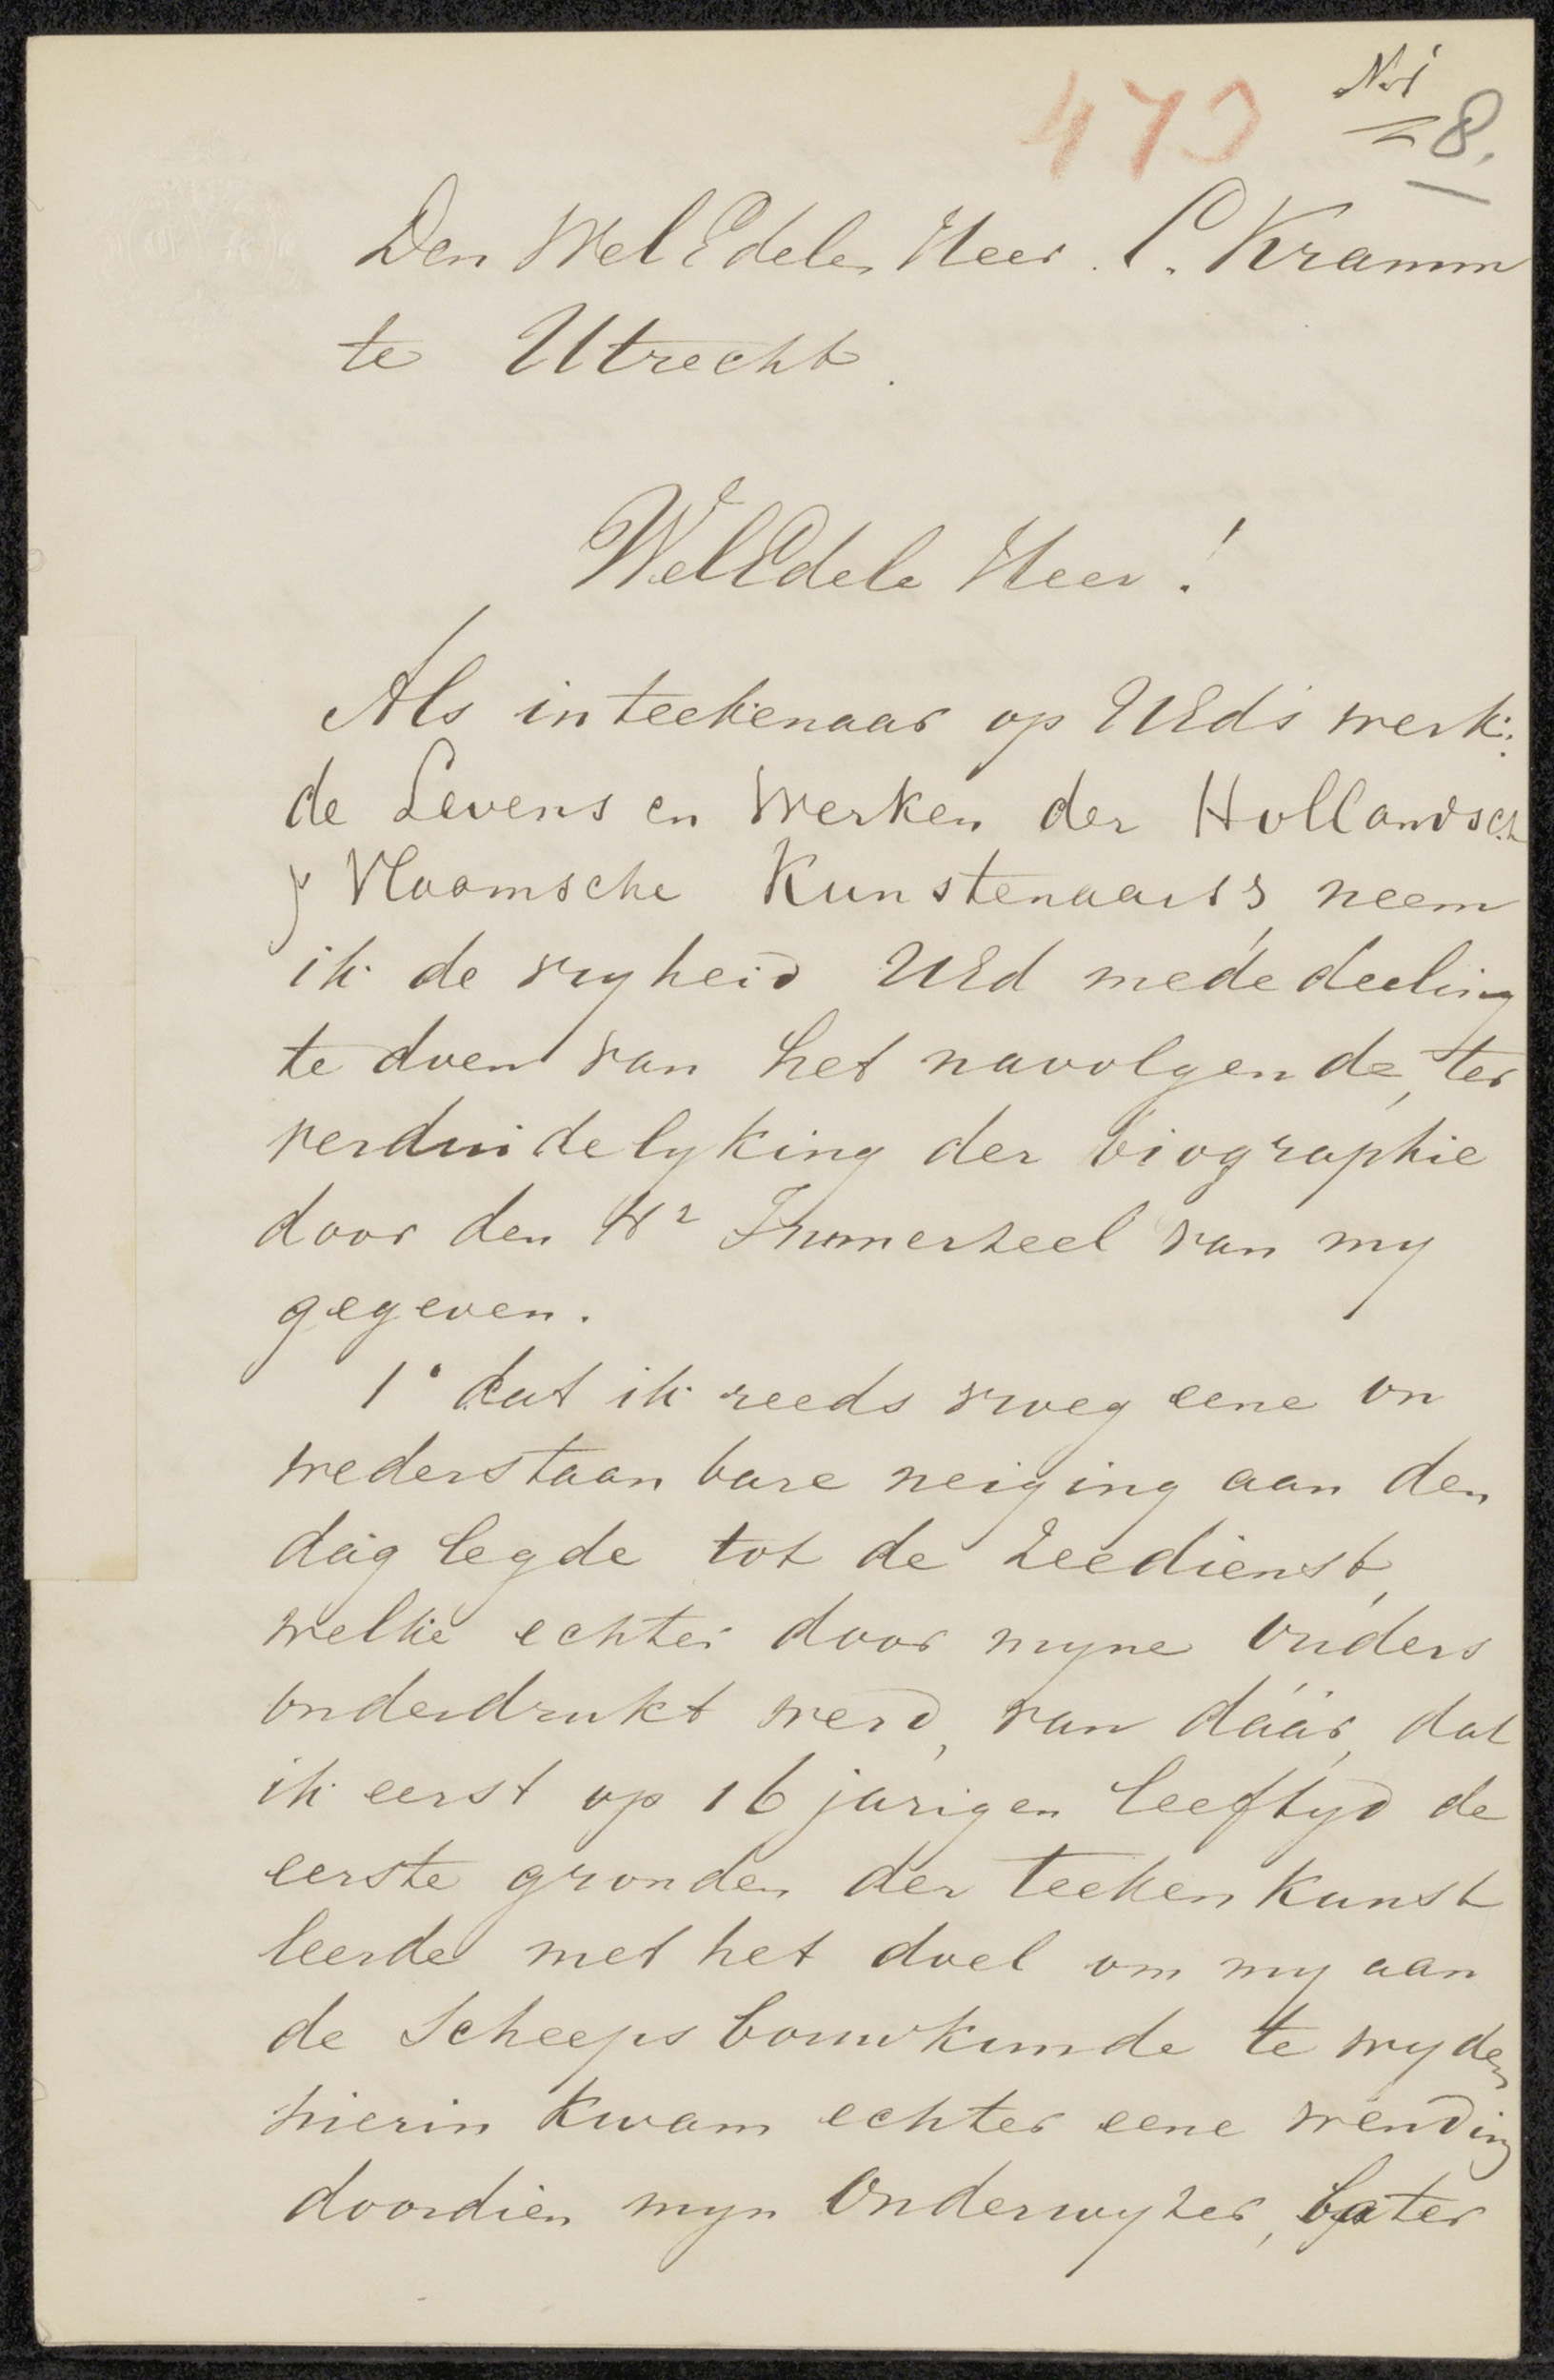 No 1
473
8.
Den WelEdelen Heer C. Kramm
te Utrecht.
WelEdele Heer!
Als inteekenaar op UEds werk:
de Levens en Werken der Hollandsch
& Vlaamsche Kunstenaars, neem
ik de vryheid UEd mededeeling
te doen van het navolgende, ter
verduidelyking der biographie
door den Hr Immerzeel van my
gegeven.
1° dat ik reeds vroeg eene on
wederstaanbare neiging aan den
dag legde tot de zeedienst,
welke echter door myne ouders
onderdrukt werd, van dáár, dat
ik eerst op 16 jarigen leeftyd de
eerste gronden der teekenkunst
leerde met het doel om my aan
de Scheepsbouwkunde te wyden
hierin kwam echter eene wending
doordien myn Onderwyzer, later